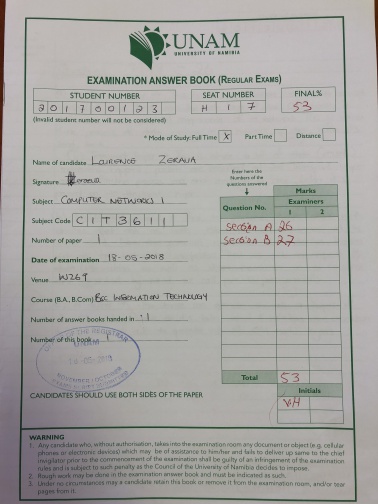 UNAM
UNIVERSITY OF NAMIBIA
EXAMINATION ANSWER BOOK (REGULAR EXAMS)
STUDENT NUMBER SEAT NUMBER FINAL%
201700123 H17 53
(Invalid student number will not be considered)
* Mode of Study: Full Time X Part Time Distance
Name of candidate LOURENCE
Enter here the Numbers of the questions answered
Signature
Marks
Subject COMPUTER NETWORKS 1
Question No. Examiners
1 2
Subject Code CIT3611
Section A 26
Number of paper 1
Section B 27
Date of examination 18-05-2018
Venue W269
Course (B.A., B.Com) BSC INFORMATION TECHNOLOGY
Number of answer books handed in 1
Number of this book 1
Total 53
CANDIDATES SHOULD USE BOTH SIDES OF THE PAPER
Initials
WARNING
1. Any candidate who, without authorisation, takes into the examination room any document or object (e.g. cellular
phones or electronic devices) which may be of assistance to him/her and fails to deliver up same to the chief
invigilator prior to the commencement of the examination shall be guilty of an infringement of the examination
rules and is subject to such penalty as the Council of the University of Namibia decides to impose.
2. Rough work may be done in the examination answer book and must be indicated as such.
3. Under no circumstances may a candidate retain this book or remove it from the examination room, and/or tear
pages from it.